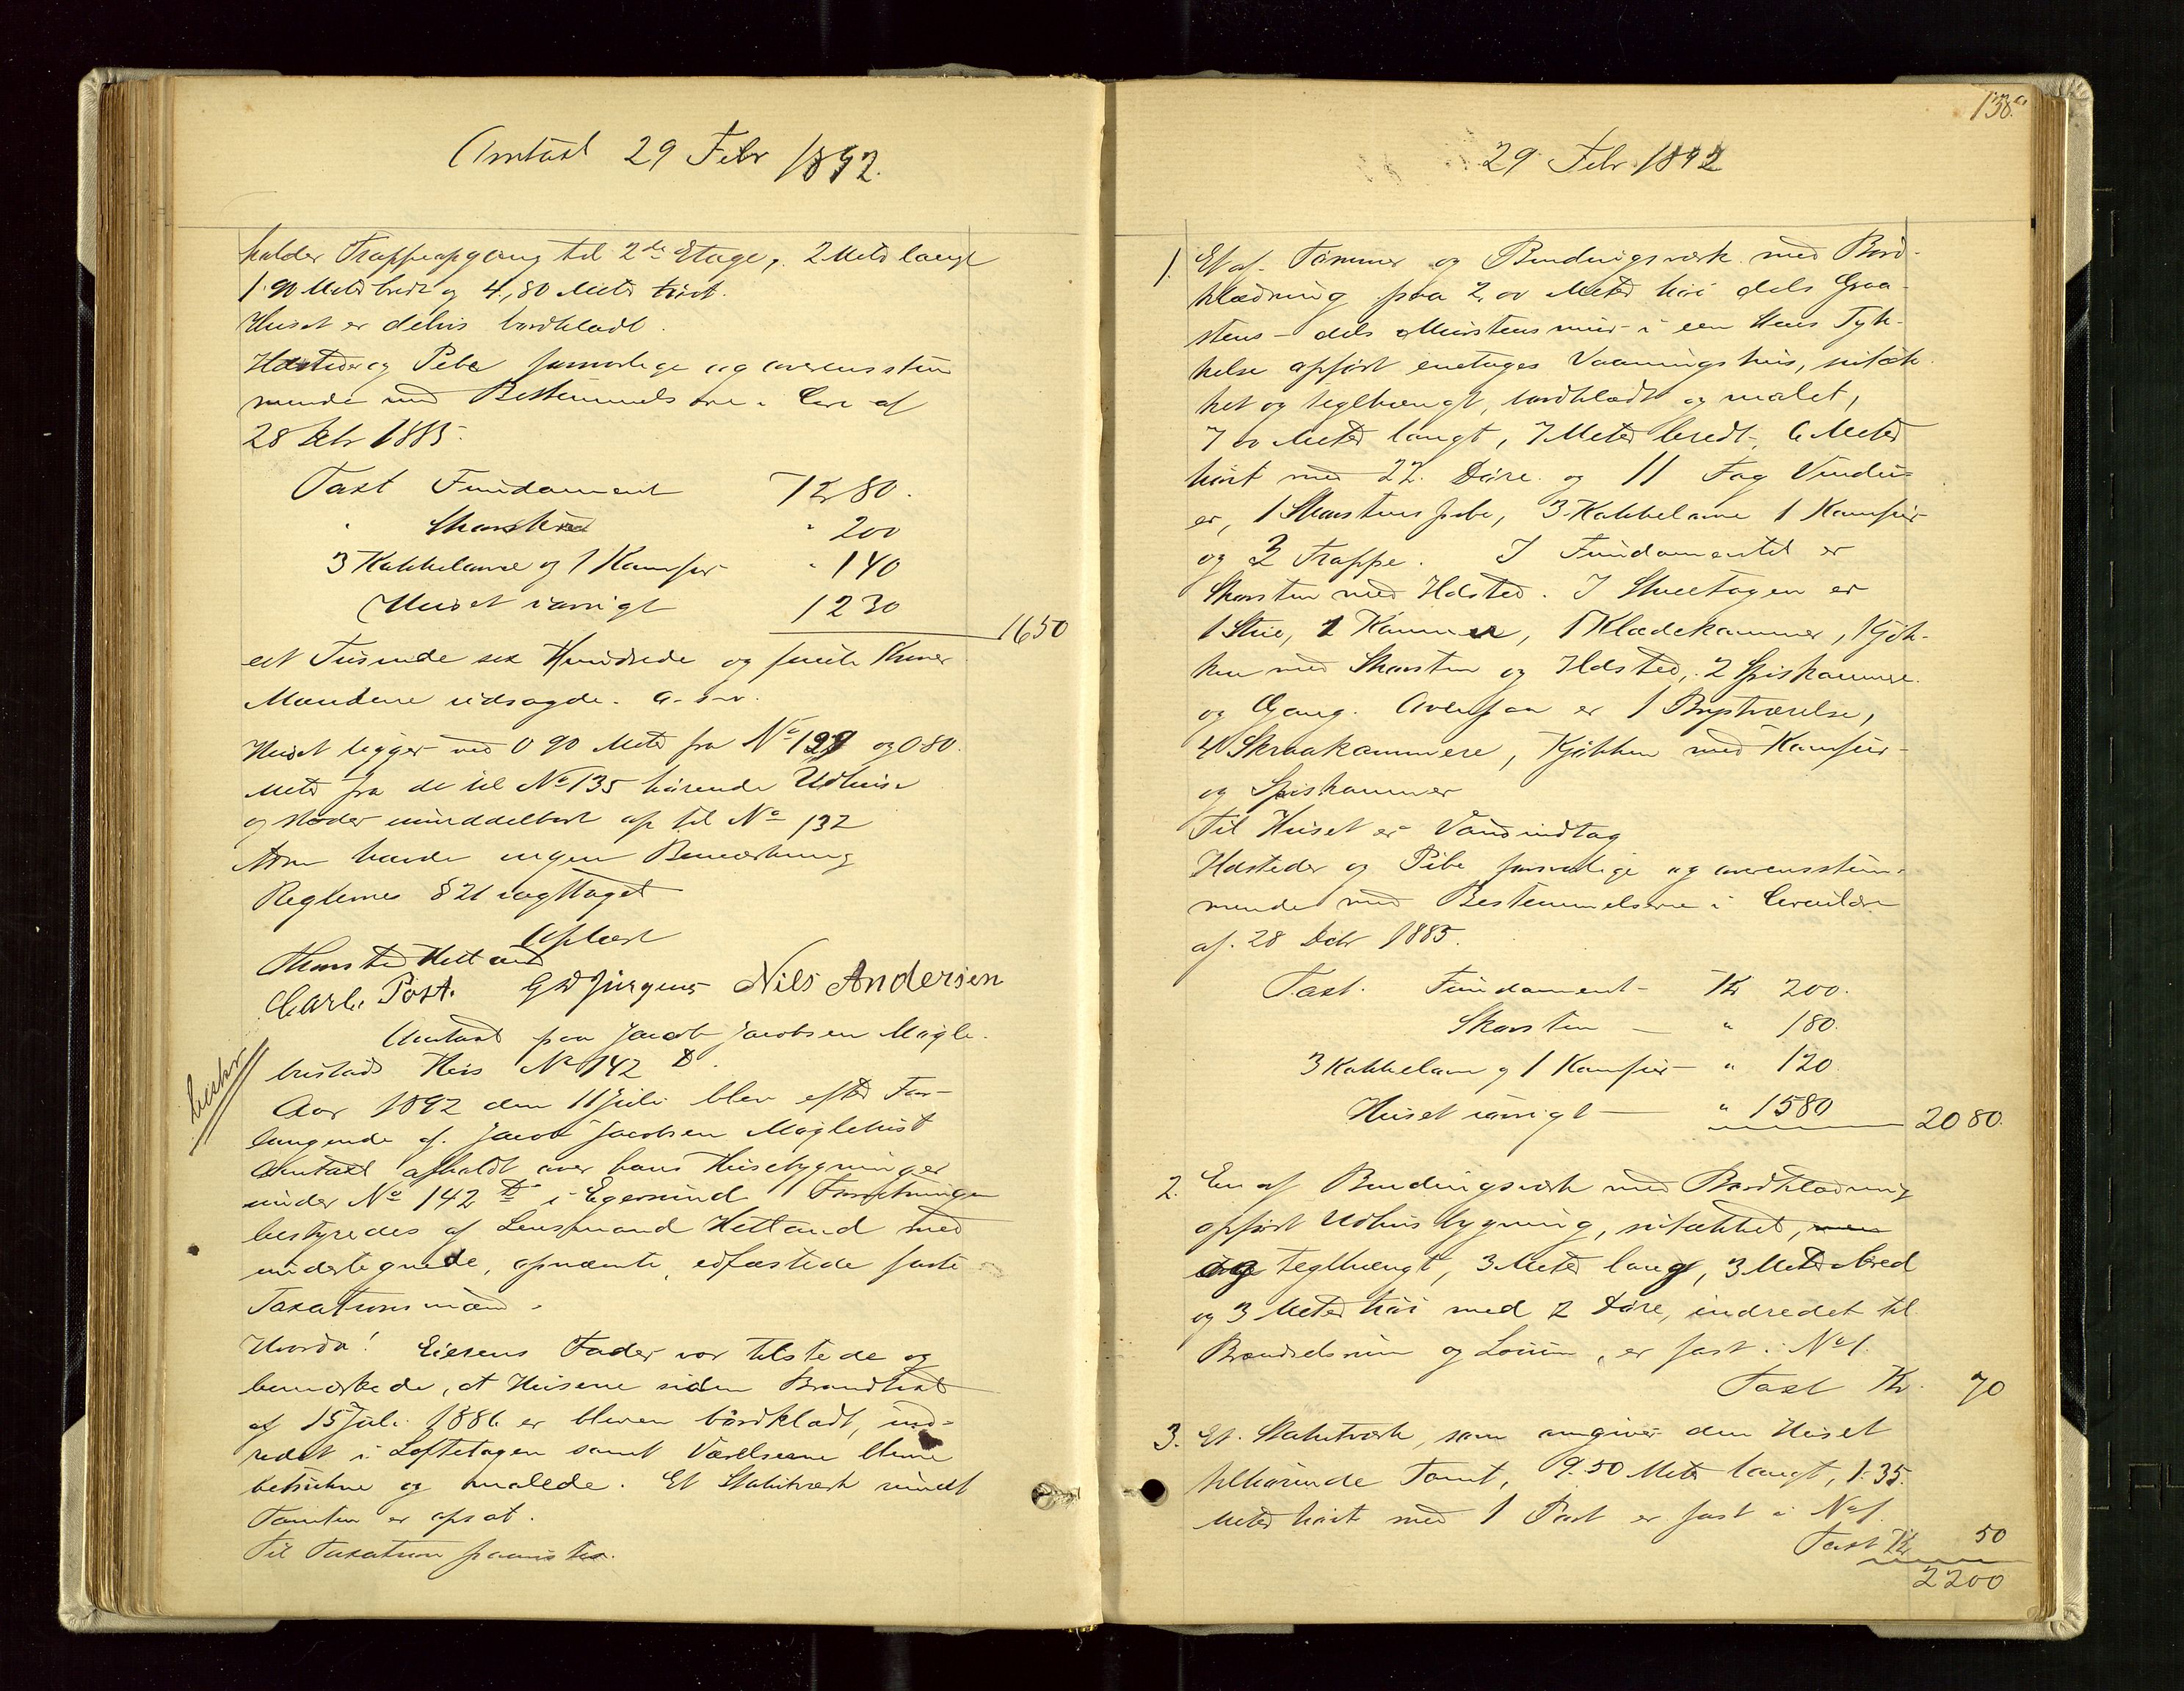 Omtaxt 29 Febr 1892.
holder Trappeopgang til 2de Etage, 2 Meter langt
1.90 Meter bredt og 4,80 Meter høit.
Huset er delvis bordklædt.
Ildsteder og Pibe forsvarlige og overensstem
mende med Bestemmelserne i Circ af
28 Febr 1885.
Taxt Fundament Kr 80.
" Skorsten " 200
3 Kakkelovne og 1 Komfur " 140
Huset iøvrigt 1230
1650
eet Tusinde sex Hundrede og femti Kroner
Mændene udsagde. o. s. v.
Huset ligger ved 0 90 Meter fra No 129 og 0 80.
Meter fra de til No 135 hørende Udhuse
og støder umiddelbart op til No 132
havde ingen Bemærkning
Reglernes § 21 iagttaget
Oplæst
Thorsten Hetland
Carl. Post. G W Jürgens Nils Andersen
Omtaxt paa Jacob Jacobsen Mögle-
bustads Hus No 142 b.
Aar 1892 den 11 Juli blev efter For-
langende af Jacob Jacobsen Möglebust
Omtaxt afholdt over hans Husebygninger
under No 142 b i Egersund Forretningen
bestyredes af Lensmand Hetland med
undertegnede, opnævnte, edfæstede faste
Taxationsmænd.
Hvorda! Eierens Fader var tilstede og
bemærkede, at Husene siden Brandtaxt
af 15 Juli 1886 er bleven bordklædt, ind-
redet i Loftetagen samt Værelserne blevne
betrukne og malede. Et Stakitværk rundt
Tomten er opsat.
Til Taxation paavistes.
138 a
29 Febr 1892
1. Et af Tømmer og Bindingsværk med Bord-
klædning paa 2,00 Meter høi dels Graa-
stens- dels Murstensmur i een Stens Tyk-
kelse opført enetages Vaaningshus, sutæk
ket og teglhængt, bordklædt og malet,
7 00 Meter langt, 7 Meter bredt, 6 Meter
høit med 22 Døre og 11 Fag Vindu-
er, 1 Skorstenspibe, 3 Kakkelovne 1 Komfur
og 3 Trappe. I Fundamentet er
Skorsten med Ildsted. I Stueetagen er
1 Stue, 1 Kammer, 1 Klædekammer, 1 Kjøk-
ken med Skorsten og Ildsted, 2 Spiskammere
og Gang. Ovenpaa er 1 Brystværelse,
4 Skraakammere, Kjøkken med Komfur
og Spiskammer
Til Huset er Vandindtag
Ildsteder og Pibe forsvarlige og overensstem-
mende med Bestemmelserne i Circulære
af 28 Febr 1885.
Taxt. Fundament Kr 200.
Skorsten " 180.
3 Kakkelovn og 1 Komfur " 120.
Huset iøvrigt " 1580
2080.
2. En af Bindingsværk med Bordklædning
opført Udhusbygning, sutækket,
og teglhængt, 3 Meter lang, 3 Meter bred
og 3 Meter høi med 2 Døre, indredet til
Brændselsrum og Loium, er fast i No 1.
Taxt Kr. 70
3. Et Stakitværk, som omgiver den Huset
tilhørende Tomt, 9.50 Meter langt, 1.35.
Meter høit med 1 Port er fast i No 1.
Taxt Kr 50
2200